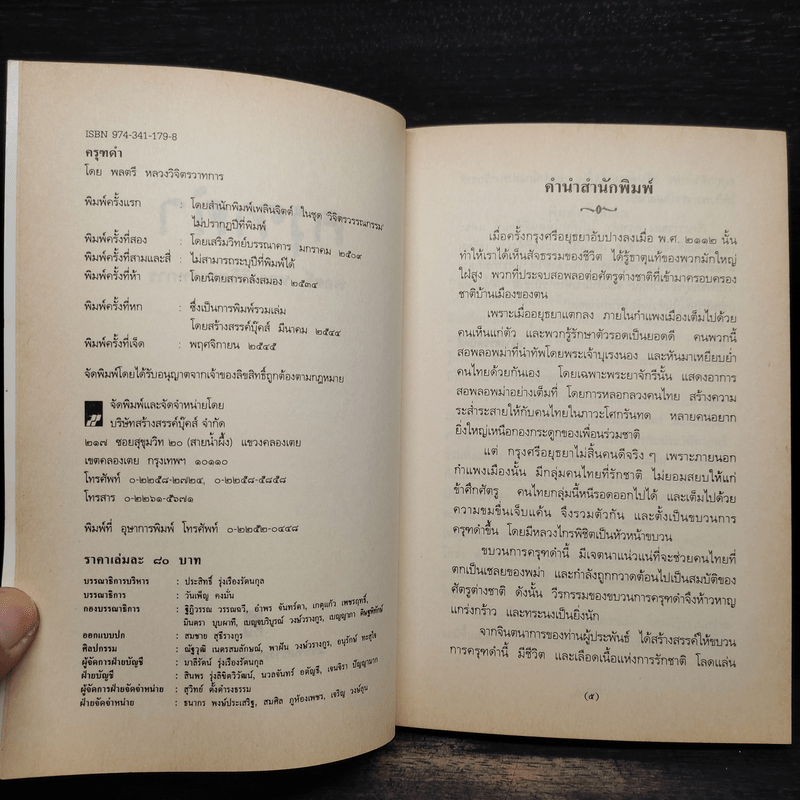 ISBN 974-341-179-8
ครุฑดำ
โดย พลตรี หลวงวิจิตรวาทการ
พิมพ์ครั้งแรก : โดยสำนักพิมพ์เพลินจิตต์ ในชุด "วิจิตรวรรณกรรม"
ไม่ปรากฏปีที่พิมพ์
พิมพ์ครั้งที่สอง : โดยเสริมวิทย์บรรณาคาร มกราคม ๒๕๐๙
พิมพ์ครั้งที่สามและสี่ : ไม่สามารถระบุปีที่พิมพ์ได้
พิมพ์ครั้งที่ห้า : โดยนิตยสารคลังสมอง ๒๕๓๔
พิมพ์ครั้งที่หก : ซึ่งเป็นการพิมพ์รวมเล่ม
โดยสร้างสรรค์บุ๊คส์ มีนาคม ๒๕๔๔
พิมพ์ครั้งที่เจ็ด : พฤศจิกายน ๒๕๔๕
จัดพิมพ์โดยได้รับอนุญาตจากเจ้าของลิขสิทธิ์ถูกต้องตามกฎหมาย
จัดพิมพ์และจัดจำหน่ายโดย
บริษัทสร้างสรรค์บุ๊คส์ จำกัด
๒๑๗ ซอยสุขุมวิท ๒๐ (สายน้ำผึ้ง) แขวงคลองเตย
เขตคลองเตย กรุงเทพฯ ๑๐๑๑๐
โทรศัพท์ ๐-๒๒๕๘-๒๗๒๔, ๐-๒๒๕๘-๕๘๕๘
โทรสาร ๐-๒๒๖๑-๕๖๗๑
พิมพ์ที่ อุษาการพิมพ์ โทรศัพท์ ๐-๒๒๕๒-๐๔๔๘
ราคาเล่มละ ๘๐ บาท
บรรณาธิการบริหาร : ประสิทธิ์ รุ่งเรืองรัตนกุล
บรรณาธิการ : วันเพ็ญ คงมั่น
กองบรรณาธิการ : ฐิฏิวรรณ วรรณฉวี, อำพร จันทร์ดา, เกตุแก้ว เพชรฤทธิ์,
มินตรา บุบผาที, เบญจบริบูรณ์ วงษ์วรางกูร, เบญญาภา
ออกแบบปก : สมชาย สุธีรางกูร
ศิลปกรรม : ณัฐวุฒิ เนตรสมลักษณ์, พาฝัน วงษ์วรางกูร, อนุรักษ์
ผู้จัดการฝ่ายบัญชี : มาลีรัตน์ รุ่งเรืองรัตนกุล
ฝ่ายบัญชี : สินพร รุ่งลิขิตวิวัฒน์, นวลจันทร์ อดัญธี, เจนจิรา ปัญญามาก
ผู้จัดการฝ่ายจัดจำหน่าย : สุวิทย์ ตั้งดำรงธรรม
ฝ่ายจัดจำหน่าย : ธนากร พงษ์ประเสริฐ, สมศิล ภูห้องเพชร, เจริญ
คำนำสำนักพิมพ์
เมื่อครั้งกรุงศรีอยุธยาอับปางลงเมื่อ พ.ศ. ๒๑๑๒ นั้น
ทำให้เราได้เห็นสัจธรรมของชีวิต ได้รู้ธาตุแท้ของพวกมักใหญ่
ใฝ่สูง พวกที่ประจบสอพลอต่อศัตรูต่างชาติที่เข้ามาครอบครอง
ชาติบ้านเมืองของตน
เพราะเมื่ออยุธยาแตกลง ภายในกำแพงเมืองเต็มไปด้วย
คนเห็นแก่ตัว และพวกรู้รักษาตัวรอดเป็นยอดดี คนพวกนี้
สอพลอพม่าที่นำทัพโดยพระเจ้าบุเรงนอง และหันมาเหยียบย่ำ
คนไทยด้วยกันเอง โดยเฉพาะพระยาจักรีนั้น แสดงอาการ
สอพลอพม่าอย่างเต็มที่ โดยการหลอกลวงคนไทย สร้างความ
ระส่ำระสายให้กับคนไทยในภาวะโศกรันทด หลายคนอยาก
ยิ่งใหญ่เหนือกองกระดูกของเพื่อนร่วมชาติ
แต่ กรุงศรีอยุธยาไม่สิ้นคนดีจริง ๆ เพราะภายนอก
กำแพงเมืองนั้น มีกลุ่มคนไทยที่รักชาติ ไม่ยอมสยบให้แก่
ข้าศึกศัตรู คนไทยกลุ่มนี้หนีรอดออกไปได้ และเต็มไปด้วย
ความขมขื่นเจ็บแค้น จึงรวมตัวกัน และตั้งเป็นขบวนการ
ครุฑดำขึ้น โดยมีหลวงไกรพิชิตเป็นหัวหน้าขบวน
ขบวนการครุฑดำนี้ มีเจตนาแน่วแน่ที่จะช่วยคนไทยที่
ตกเป็นเชลยของพม่า และกำลังถูกกวาดต้อนไปเป็นสมบัติของ
ศัตรูต่างชาติ ดังนั้น วีรกรรมของขบวนการครุฑดำจึงห้าวหาญ
แกร่งกร้าว และทระนงเป็นยิ่งนัก
จากจินตนาการของท่านผู้ประพันธ์ ได้สร้างสรรค์ให้ขบวน
การครุฑดำนี้ มีชีวิต และเลือดเนื้อแห่งการรักชาติ โลดแล่น
(๕)